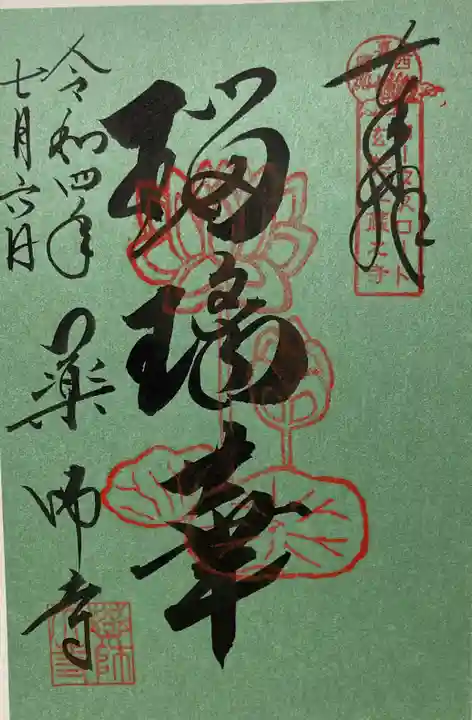 奉拝
瑠璃華
令和四年
七月六日
薬師寺